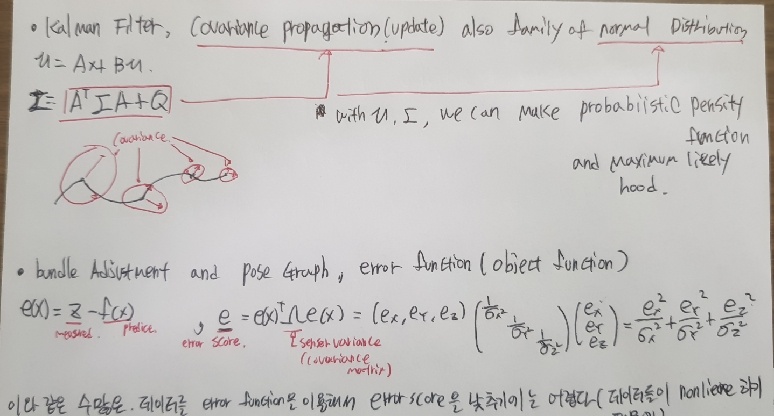 • Kalman Filter, Covariance propagation (update) also family of normal Distribution
u = Ax + Bu.
Σ = AᵀΣA + Q
with u, Σ, we can make probabiistic Density
function
and maximum likely
hood.
Covariance
• bundle Adjustment and pose Graph, error function (object function)
e(x) = z - f(x), e = e(x)ᵀΩe(x) = (ex, eY, ez) (1/σx² 1/σY² 1/σz²) (ex eY ez) = ex²/σx² + eY²/σY² + ez²/σz²
measured. error score. sensor variance
(covariance
matrix)
이와 같은 수많은. 데이터를 error function은 이용해서 error score을 낮추기에는 어렵다 (데이터들이 nonlinear